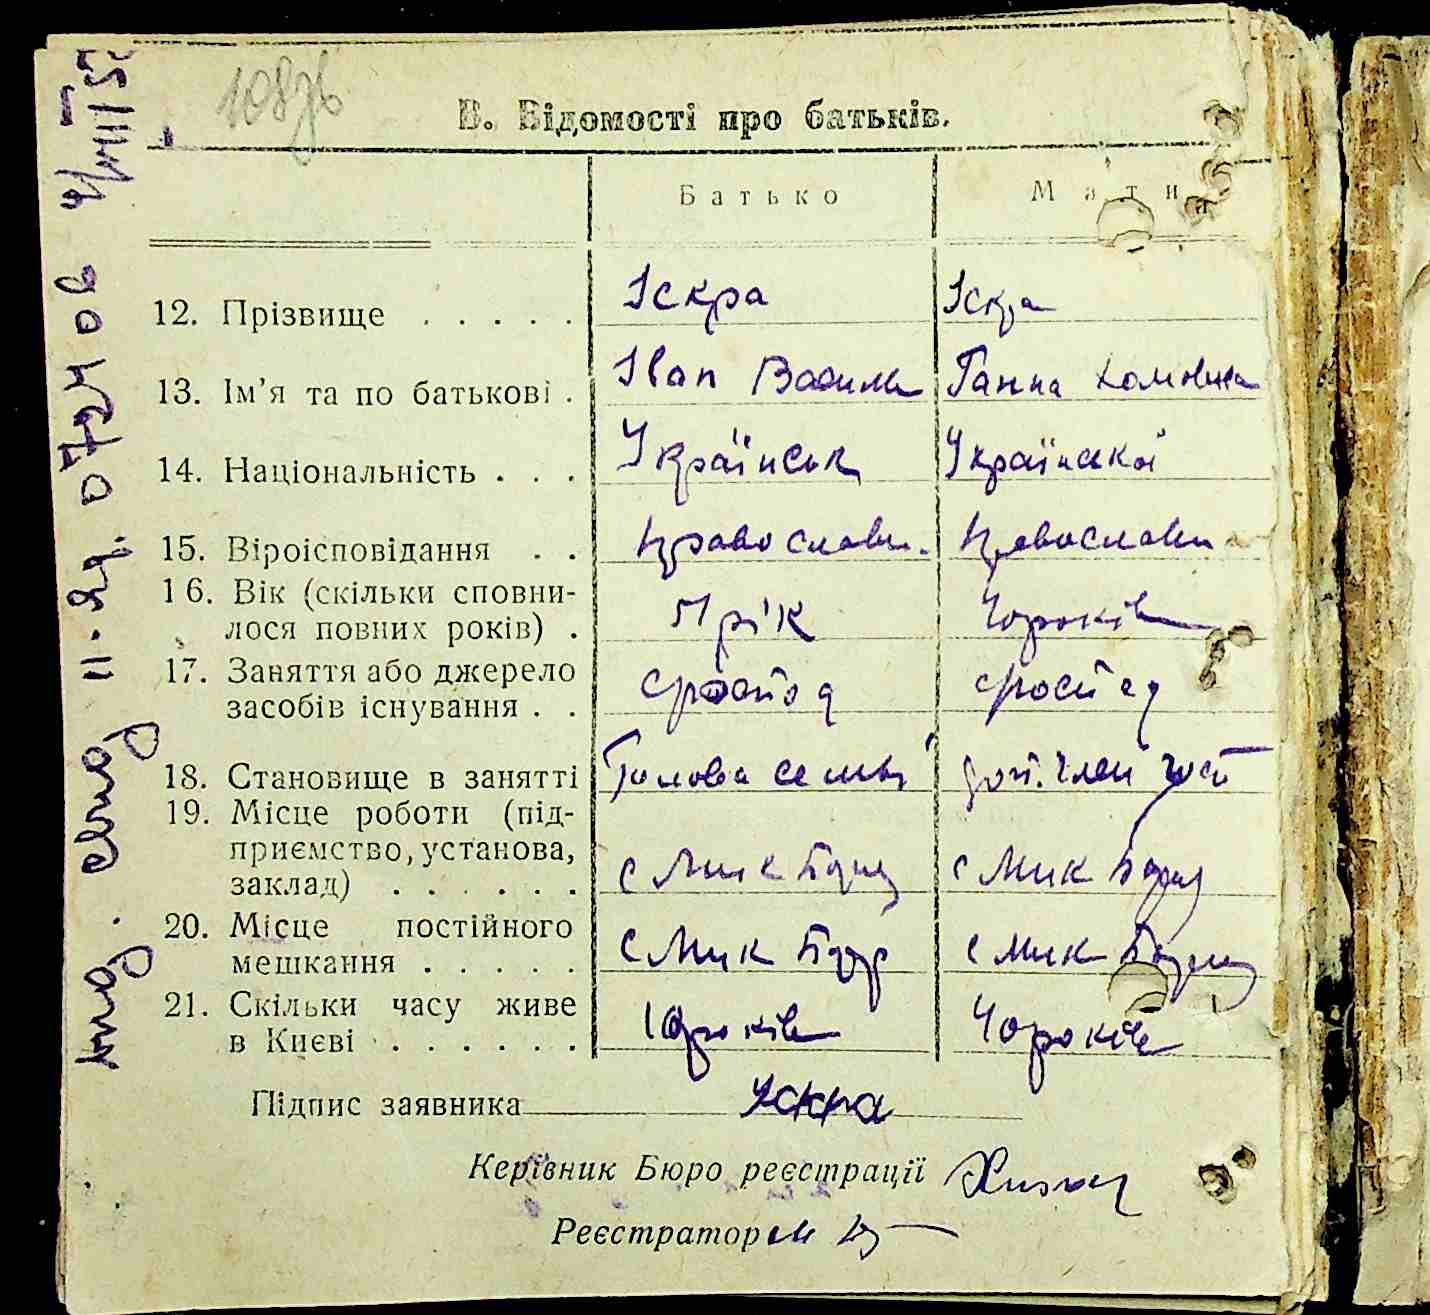 108зв
В. Відомості про батьків.
Батько Мати
12. Прізвище . . . . . Іскра Іскра
13. Ім'я та по батькові . Іван Василь Ганна Хомовна
14. Національність . . . Українськ Українська
15. Віроісповідання . . православн. православн
16. Вік (скільки сповни-
лося повних років) . 41 рік 40 років
17. Заняття або джерело
засобів існування . . госпо д госп од
18. Становище в занятті Голова семьї доп. член госп
19. Місце роботи (під-
приємство, установа,
заклад) . . . . . . с Мик Борщ с Мик Борщ
20. Місце постійного
мешкання . . . . . с Мик Борщ с Мик Борщ
21. Скільки часу живе
в Києві . . . . . . 10 років 40 років
Підпис заявника Іскра
Керівник Бюро реєстрації
Реєстратор